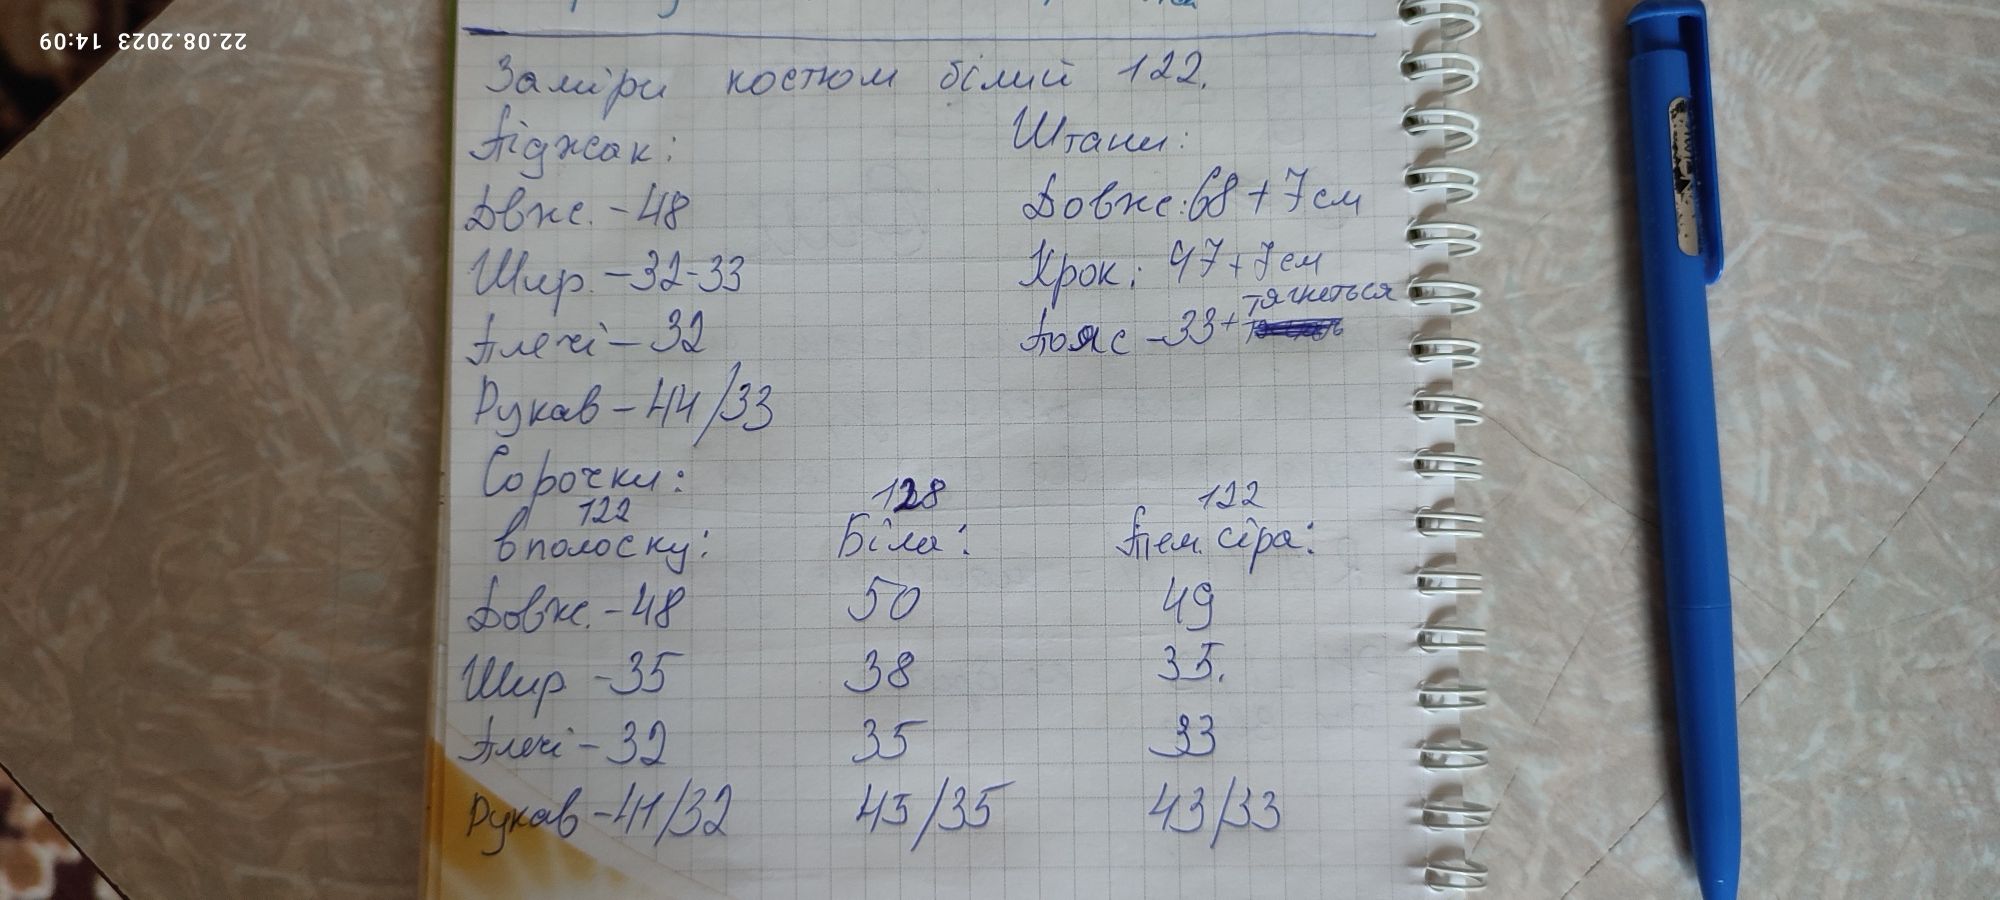 22.08.2023 14:09
Заміри костюм білий 122.
Піджак:
Двж. - 48
Шир. - 32-33
Плечі - 32
Рукав - 44/33
Штани:
Довж.: 68 + 7 см
Крок: 47 + 7 см
Пояс - 33 + тягнеться
Сорочки:
122 128 122
в полоску: Біла: Тем. сіра:
Довж. - 48 50 49
Шир - 35 38 35.
Плечі - 32 35 33
Рукав - 41/32 45/35 43/33